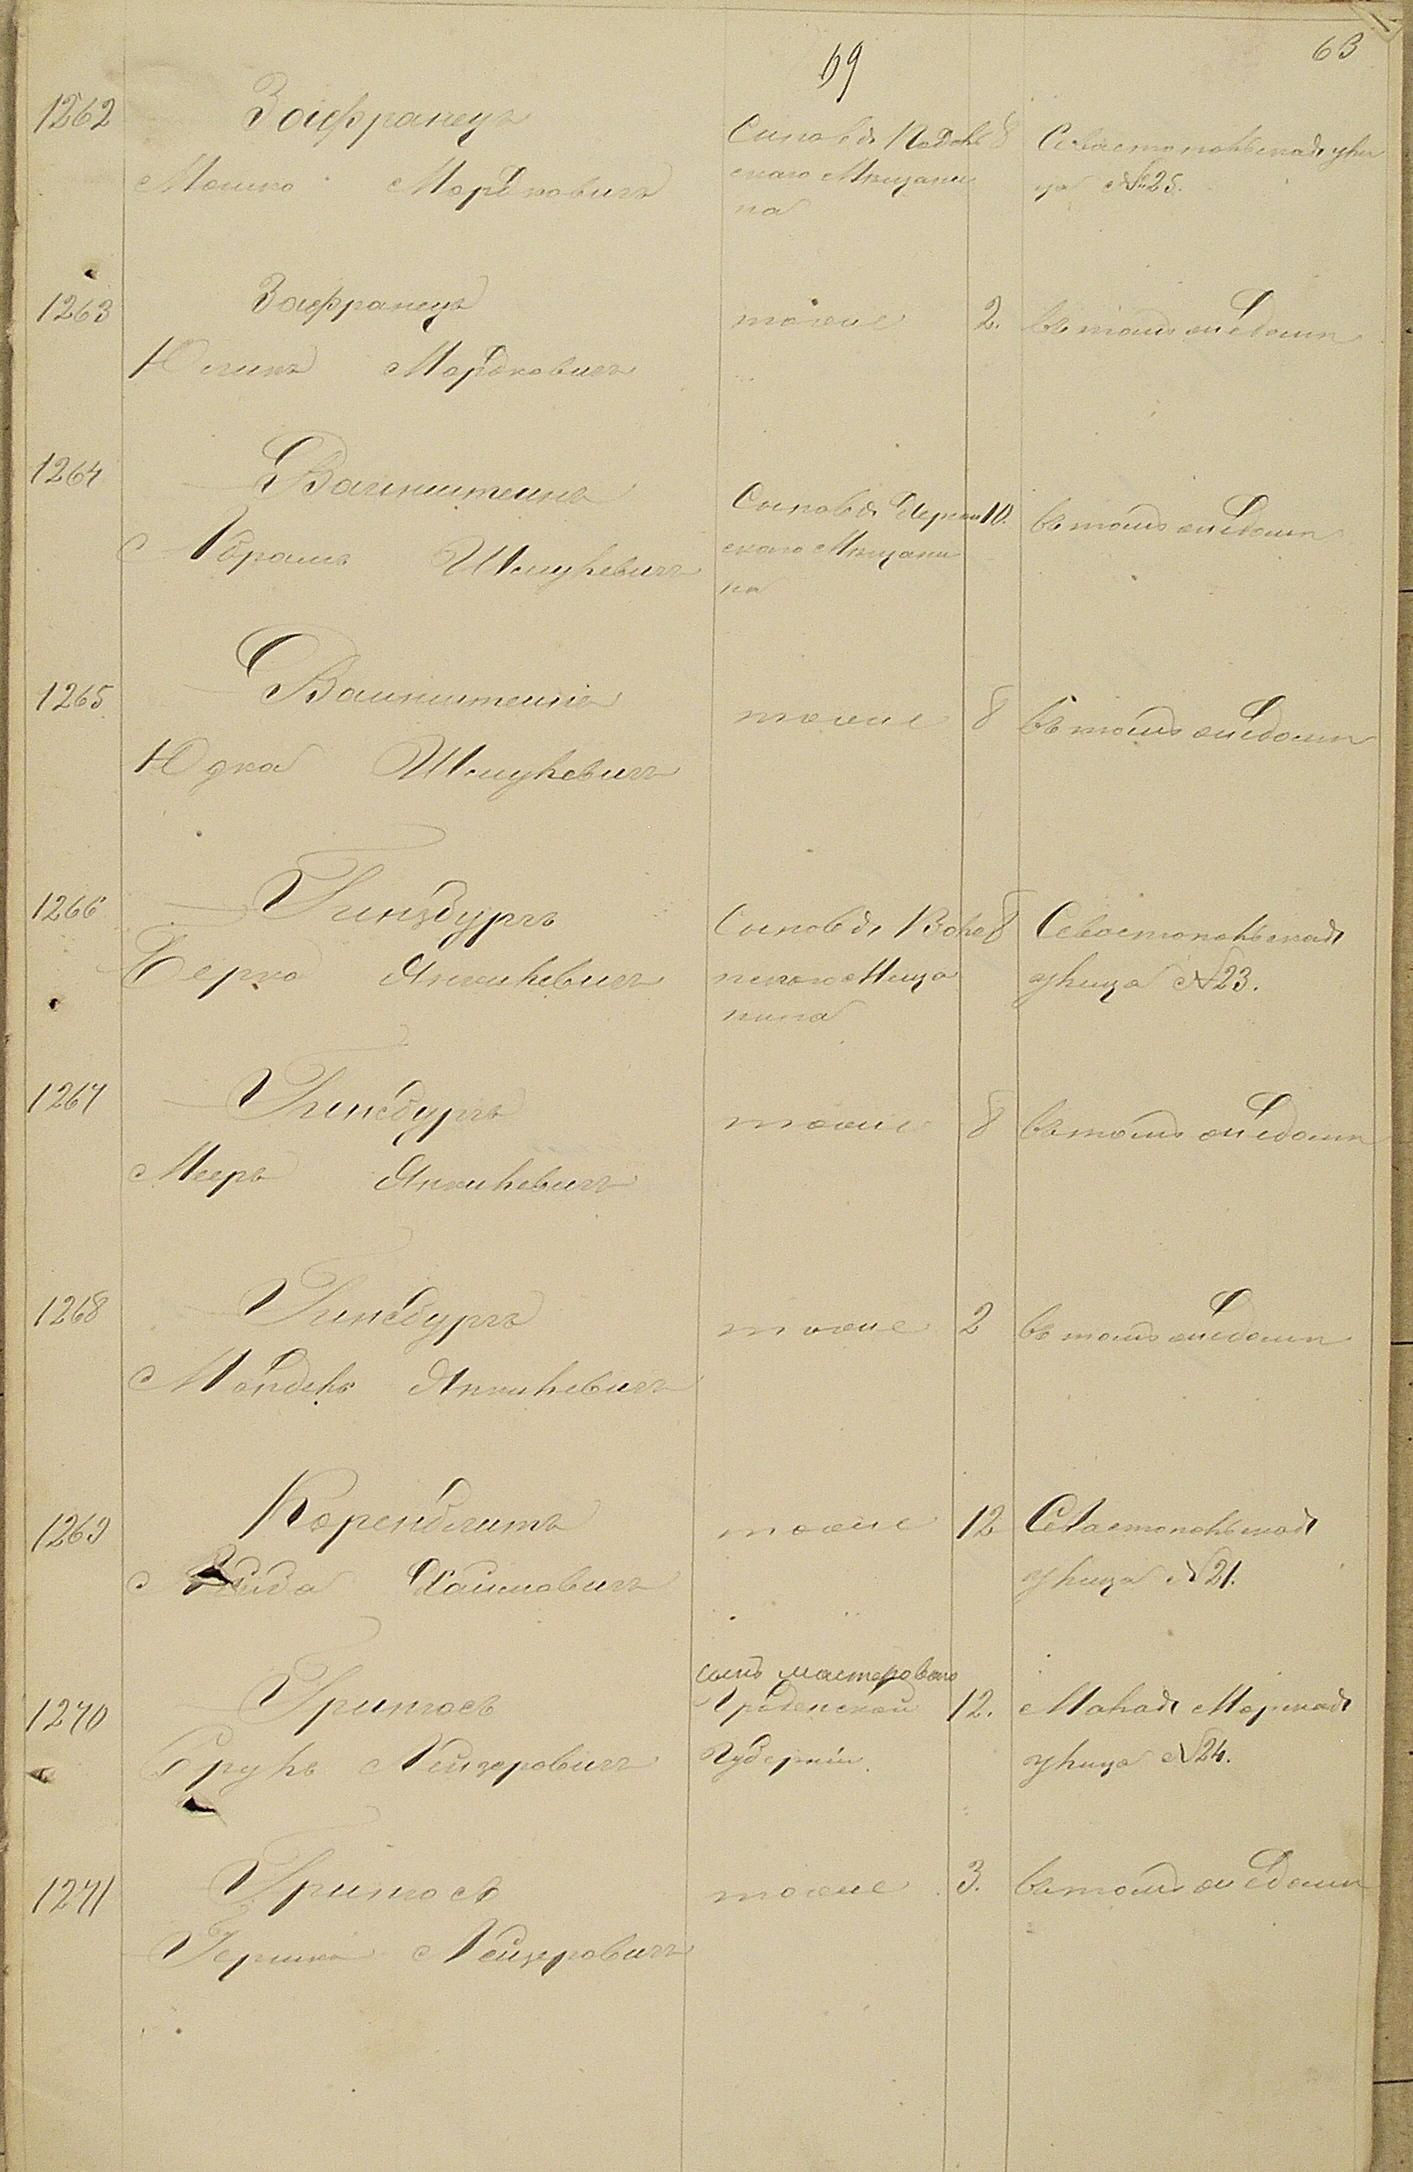 69
63
1262
Зафранецъ
Мошко Мордковичъ
Сыновья Подоль
скаго Мѣщани
на
8
Севастопольская ули
ца №25.
1263
Зафранецъ
Юлинъ Мордковичъ
тоже
2.
въ томъ же домѣ
1264
Ваинштеинъ
Абрамъ Шмулевичъ
Сыновья Херсон
скаго Мѣщани
на
10.
въ томъ же домѣ
1265
Ваинштеинъ
Юдка Шмулевичъ
тоже
8
въ томъ же домѣ
1266
Гинзбургъ
Берко Янкилевичъ
Сыновья Волы
нскаго Меща
нина
8
Севастопольская
улица №23.
1267
Гинсбургъ
Мееръ Янкилевичъ
тоже
8
въ томъ же домѣ
1268
Гинсбургъ
Мендель Янкилевичъ
тоже
2
въ томъ же домѣ
1269
Коренблитъ
Хаимовичъ
тоже
12
Севастопольская
улица №21.
1270
Гритосъ
Сруль Лейзеровичъ
сынъ мастероваго
Гродненской
Губерніи.
12.
Малая Морская
улица №24.
1271
Гритосъ
Гершко Лейзеровичъ
тоже
3.
въ томъ же домѣ